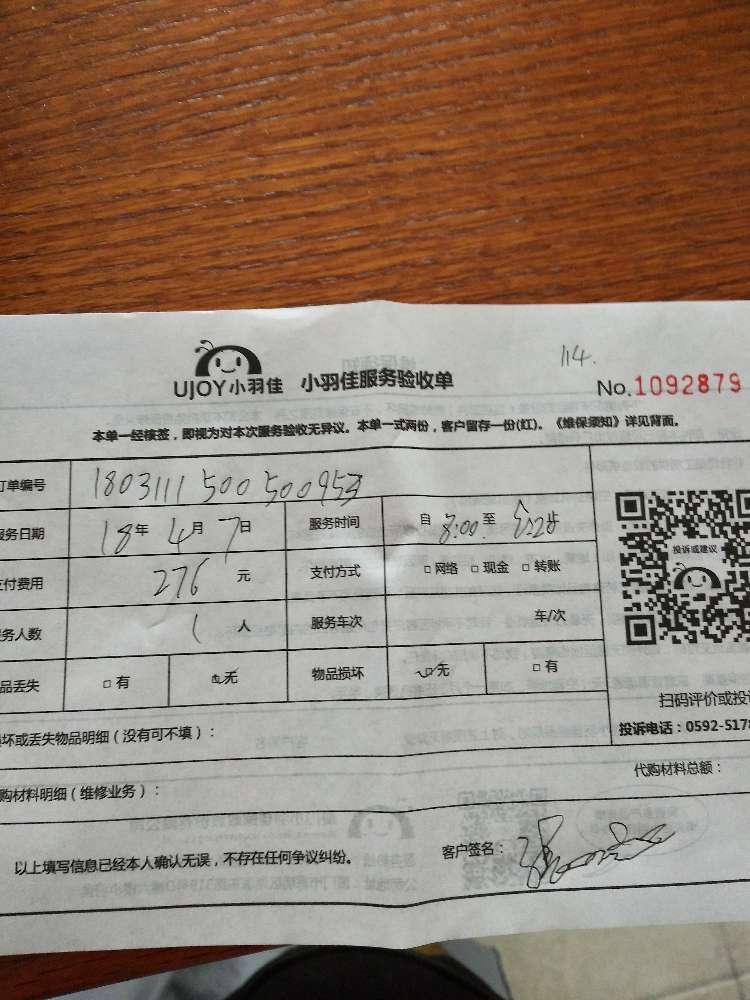 114.
UJOY小羽佳 小羽佳服务验收单 No.1092879
本单一经核签，即视为对本次服务验收无异议。本单一式两份，客户留存一份(红)。《维保须知》详见背面。
订单编号 180311150050095
服务日期 18年 4月 7日 服务时间 自 8:00 至
支付费用 276 元 支付方式 □网络 □现金 □转账
务人数 1 人 服务车次 车/次
品丢失 □有 □无 物品损坏 □无 □有
投诉或建议
扫码评价或投
投诉电话：0592-5178
坏或丢失物品明细（没有可不填）：
购材料明细（维修业务）： 代购材料总额：
以上填写信息已经本人确认无误，不存在任何争议纠纷。 客户签名：